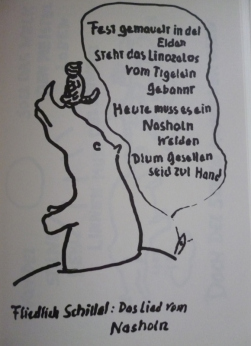 Fest gemauelt in del
Eldan
Steht das Linozelos
vom Tigeleln
gebannt
Heute muss es ein
Nasholn
welden
Dlum gesellen
seid zul Hand
Fliedlich Schillel: Das Lied vom
Nasholn